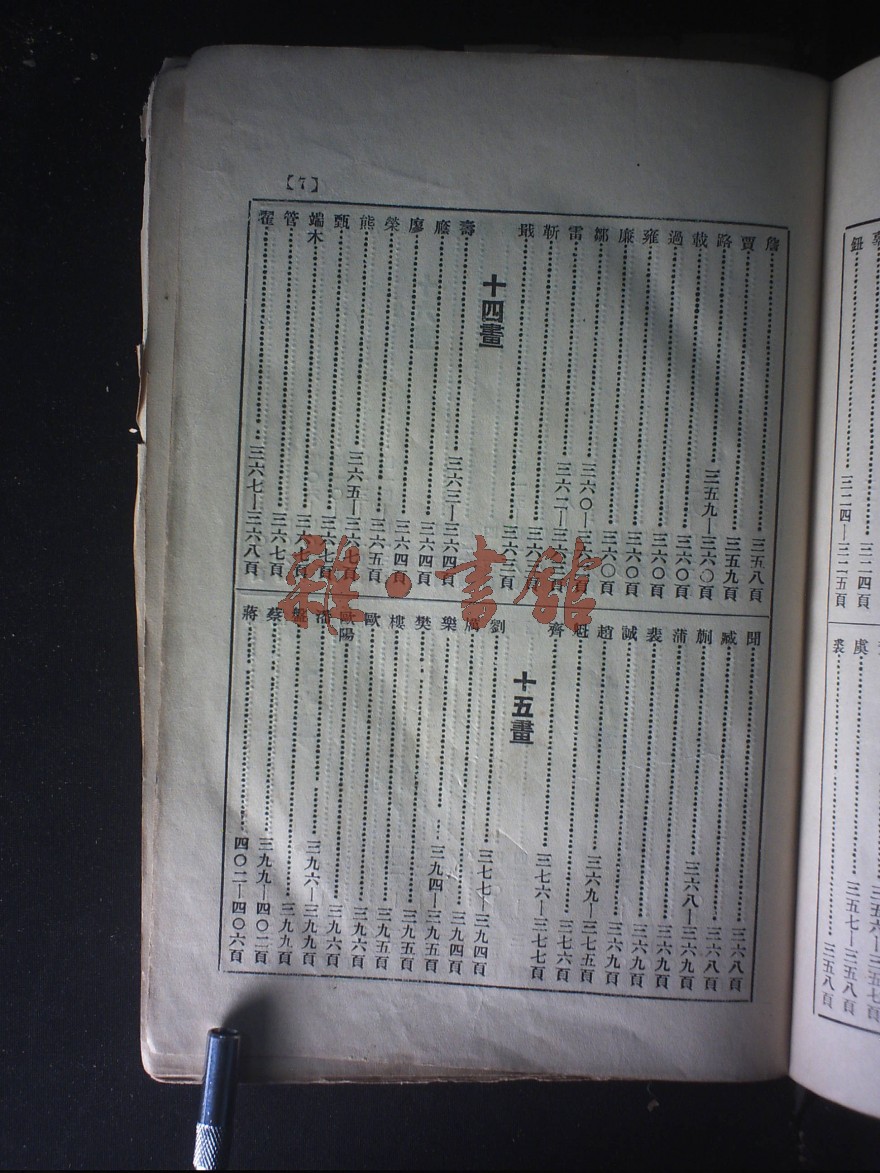 【7】
詹 三五八頁
賈 三五九頁
路 三五九頁
載 三五九—三六〇頁
過 三六〇頁
雍 三六〇頁
廉 三六〇頁
鄒
雷
靳
戢 三六三頁
十四畫
壽 三六三—三六四頁
廖 三六四頁
榮 三六四頁
熊 三六五頁
甄 三六五—三六七頁
端木 三六七頁
管 三六七頁
翟 三六七—三六八頁
聞 三六八頁
臧 三六八頁
三六八—三六九頁
蒲 三六九頁
裴 三六九頁
誠 三六九頁
趙 三六九—三七五頁
三七六頁
齊 三七六—三七七頁
十五畫
劉 三七七—三九四頁
厲 三九四頁
樂 三九四—三九五頁
樊 三九五頁
樓 三九五頁
歐 三九六頁
歐陽 三九六頁
潘 三九六—三九九頁
三九九頁
蔡 三九九—四〇二頁
蔣 四〇二—四〇六頁
鈕
三二四頁
三二四—三二五頁
虞
裘
三五六—三五七頁
三五七—三五八頁
三五八頁
雜·書館